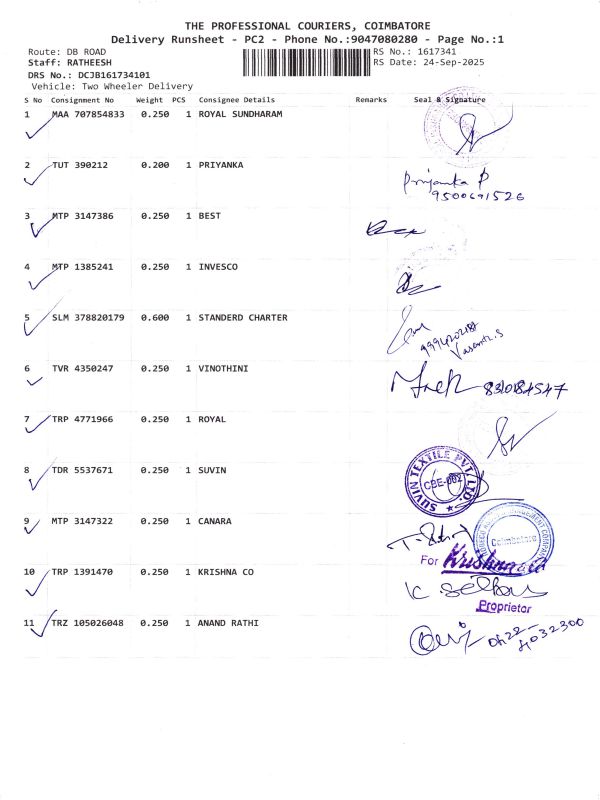 THE PROFESSIONAL COURIERS, COIMBATORE
Delivery Runsheet - PC2 - Phone No.:9047080280 - Page No.:1
Route: DB ROAD RS No.: 1617341
Staff: RATHEESH RS Date: 24-Sep-2025
DRS No.: DCJB161734101
Vehicle: Two Wheeler Delivery
S No Consignment No Weight PCS Consignee Details Remarks Seal & Signature
1 MAA 707854833 0.250 1 ROYAL SUNDHARAM
2 TUT 390212 0.200 1 PRIYANKA
Priyanka P
9500691526
3 MTP 3147386 0.250 1 BEST
4 MTP 1385241 0.250 1 INVESCO
5 SLM 378820179 0.600 1 STANDERD CHARTER
6 TVR 4350247 0.250 1 VINOTHINI
7 TRP 4771966 0.250 1 ROYAL
8 TDR 5537671 0.250 1 SUVIN
SUVIN TEXTILE PVT. LTD.
CBE-002
9 MTP 3147322 0.250 1 CANARA
Coimbatore
For Krishna & Co
10 TRP 1391470 0.250 1 KRISHNA CO
Proprietor
11 TRZ 105026048 0.250 1 ANAND RATHI
0422-
4032300